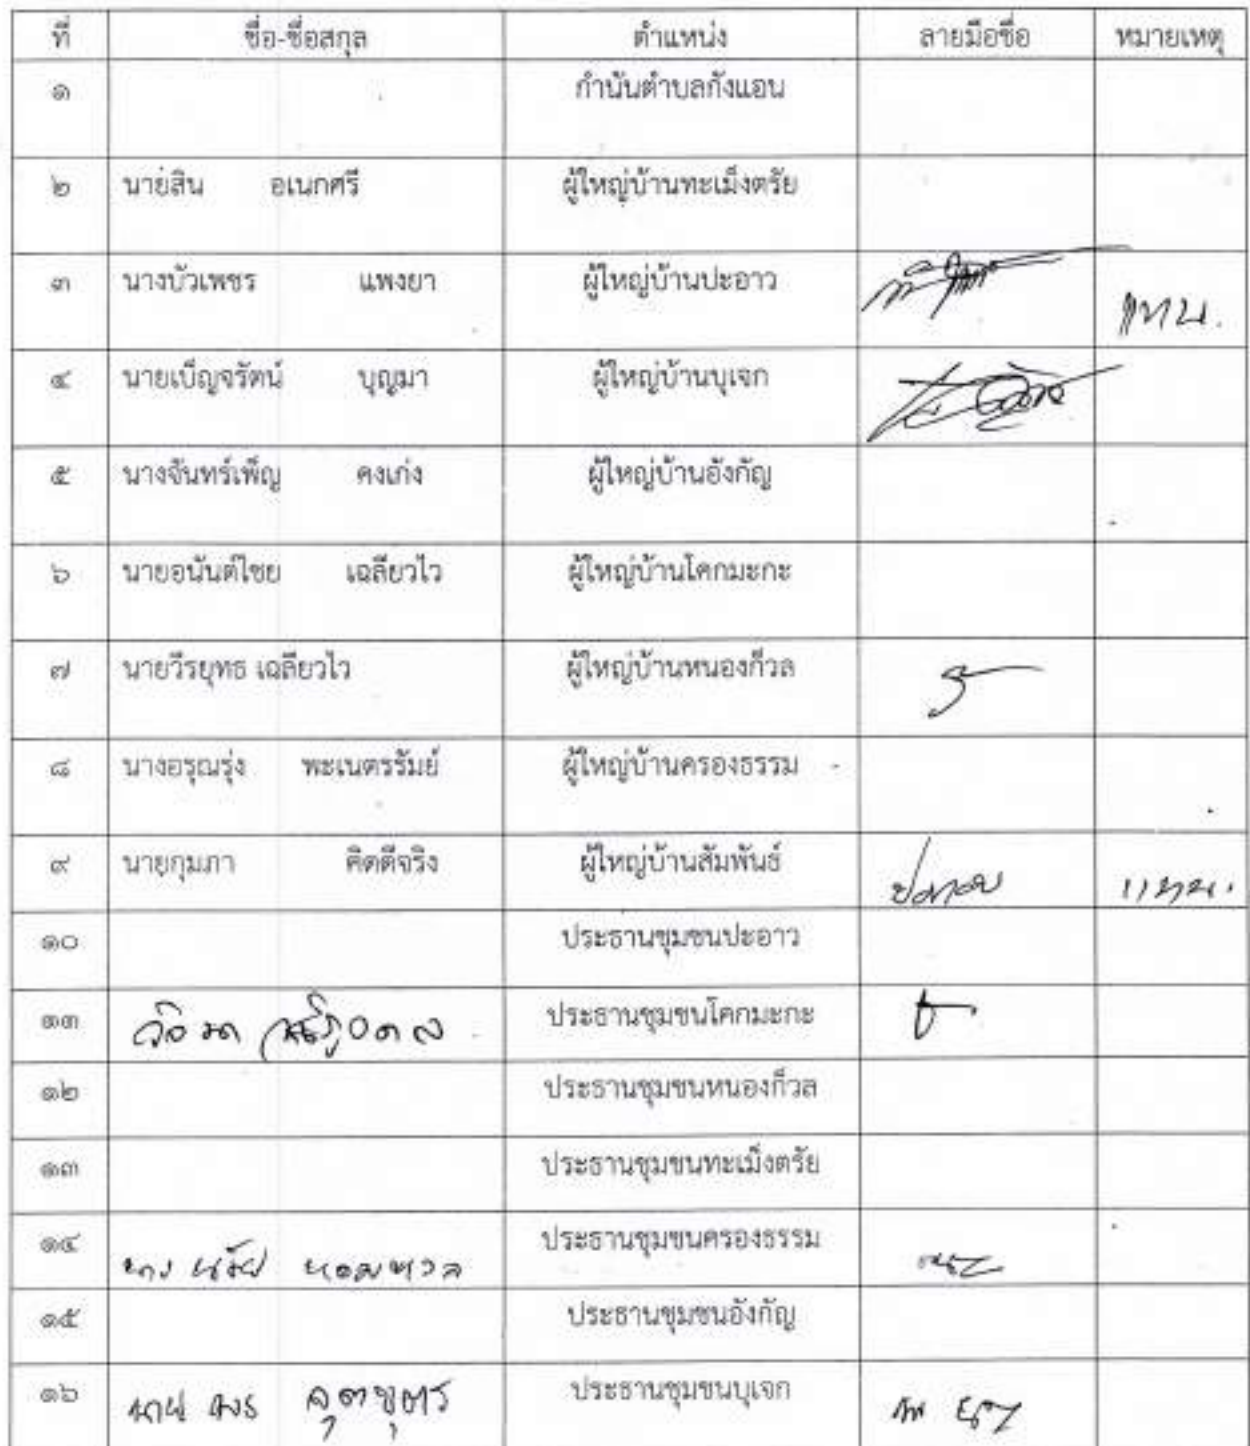 ที่ ชื่อ-ชื่อสกุล ตำแหน่ง ลายมือชื่อ หมายเหตุ
๑ กำนันตำบลกังแอน
๒ นายสิน อเนกศรี ผู้ใหญ่บ้านทะเม็งตรัย
๓ นางบัวเพชร แพงยา ผู้ใหญ่บ้านปะอาว แทน.
๔ นายเบ็ญจรัตน์ บุญมา ผู้ใหญ่บ้านบุเจก
๕ นางจันทร์เพ็ญ คงเก่ง ผู้ใหญ่บ้านอังกัญ
๖ นายอนันต์ไชย เฉลียวไว ผู้ใหญ่บ้านโคกมะกะ
๗ นายวีรยุทธ เฉลียวไว ผู้ใหญ่บ้านหนองก็วล
๘ นางอรุณรุ่ง พะเนตรรัมย์ ผู้ใหญ่บ้านครองธรรม
๙ นายกุมภา คิดดีจริง ผู้ใหญ่บ้านสัมพันธ์ แทน.
๑๐ ประธานชุมชนปะอาว
๑๑ ประธานชุมชนโคกมะกะ
๑๒ ประธานชุมชนหนองก็วล
๑๓ ประธานชุมชนทะเม็งตรัย
๑๔ นาง ประธานชุมชนครองธรรม
๑๕ ประธานชุมชนอังกัญ
๑๖ นาย ประธานชุมชนบุเจก